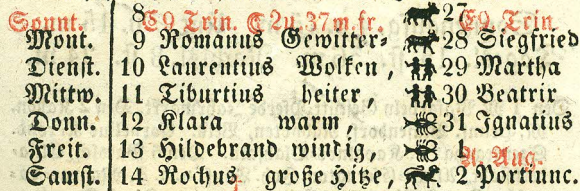 Sonnt. 8 E9 Trin. 2u.37m.fr. 27 E9. Trin
Mont. 9 Romanus Gewitter- 28 Siegfried
Dienst. 10 Laurentius Wolken, 29 Martha
Mittw. 11 Tiburtius heiter, 30 Beatrix
Donn. 12 Klara warm, 31 Ignatius
Freit. 13 Hildebrand windig, A. Aug.
Samst. 14 Rochus große Hitze, 2 Portiunc.